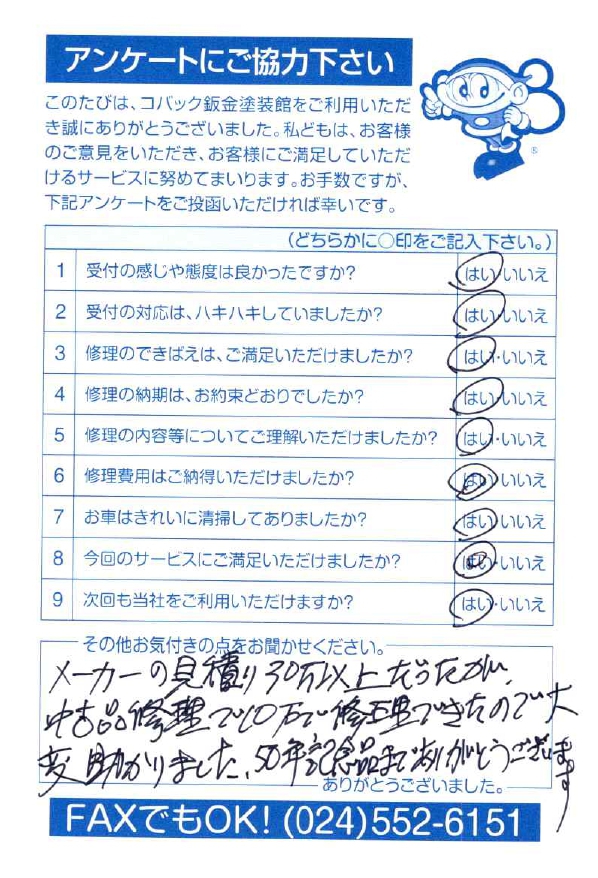 アンケートにご協力下さい
このたびは、コバック鈑金塗装館をご利用いただ
き誠にありがとうございました。私どもは、お客様
のご意見をいただき、お客様にご満足していただ
けるサービスに努めてまいります。お手数ですが、
下記アンケートをご投函いただければ幸いです。
®
(どちらかに○印をご記入下さい。)
1 受付の感じや態度は良かったですか? はい・いいえ
2 受付の対応は、ハキハキしていましたか? はい・いいえ
3 修理のできばえは、ご満足いただけましたか? はい・いいえ
4 修理の納期は、お約束どおりでしたか? はい・いいえ
5 修理の内容等についてご理解いただけましたか? はい・いいえ
6 修理費用はご納得いただけましたか? はい・いいえ
7 お車はきれいに清掃してありましたか? はい・いいえ
8 今回のサービスにご満足いただけましたか? はい・いいえ
9 次回も当社をご利用いただけますか? はい・いいえ
その他お気付きの点をお聞かせください。
メーカーの見積り30万以上だったが、
中古品修理で10万で修理できたので大
変助かりました、50年記念品までありがとうございます
ありがとうございました。
FAXでもOK! (024)552-6151